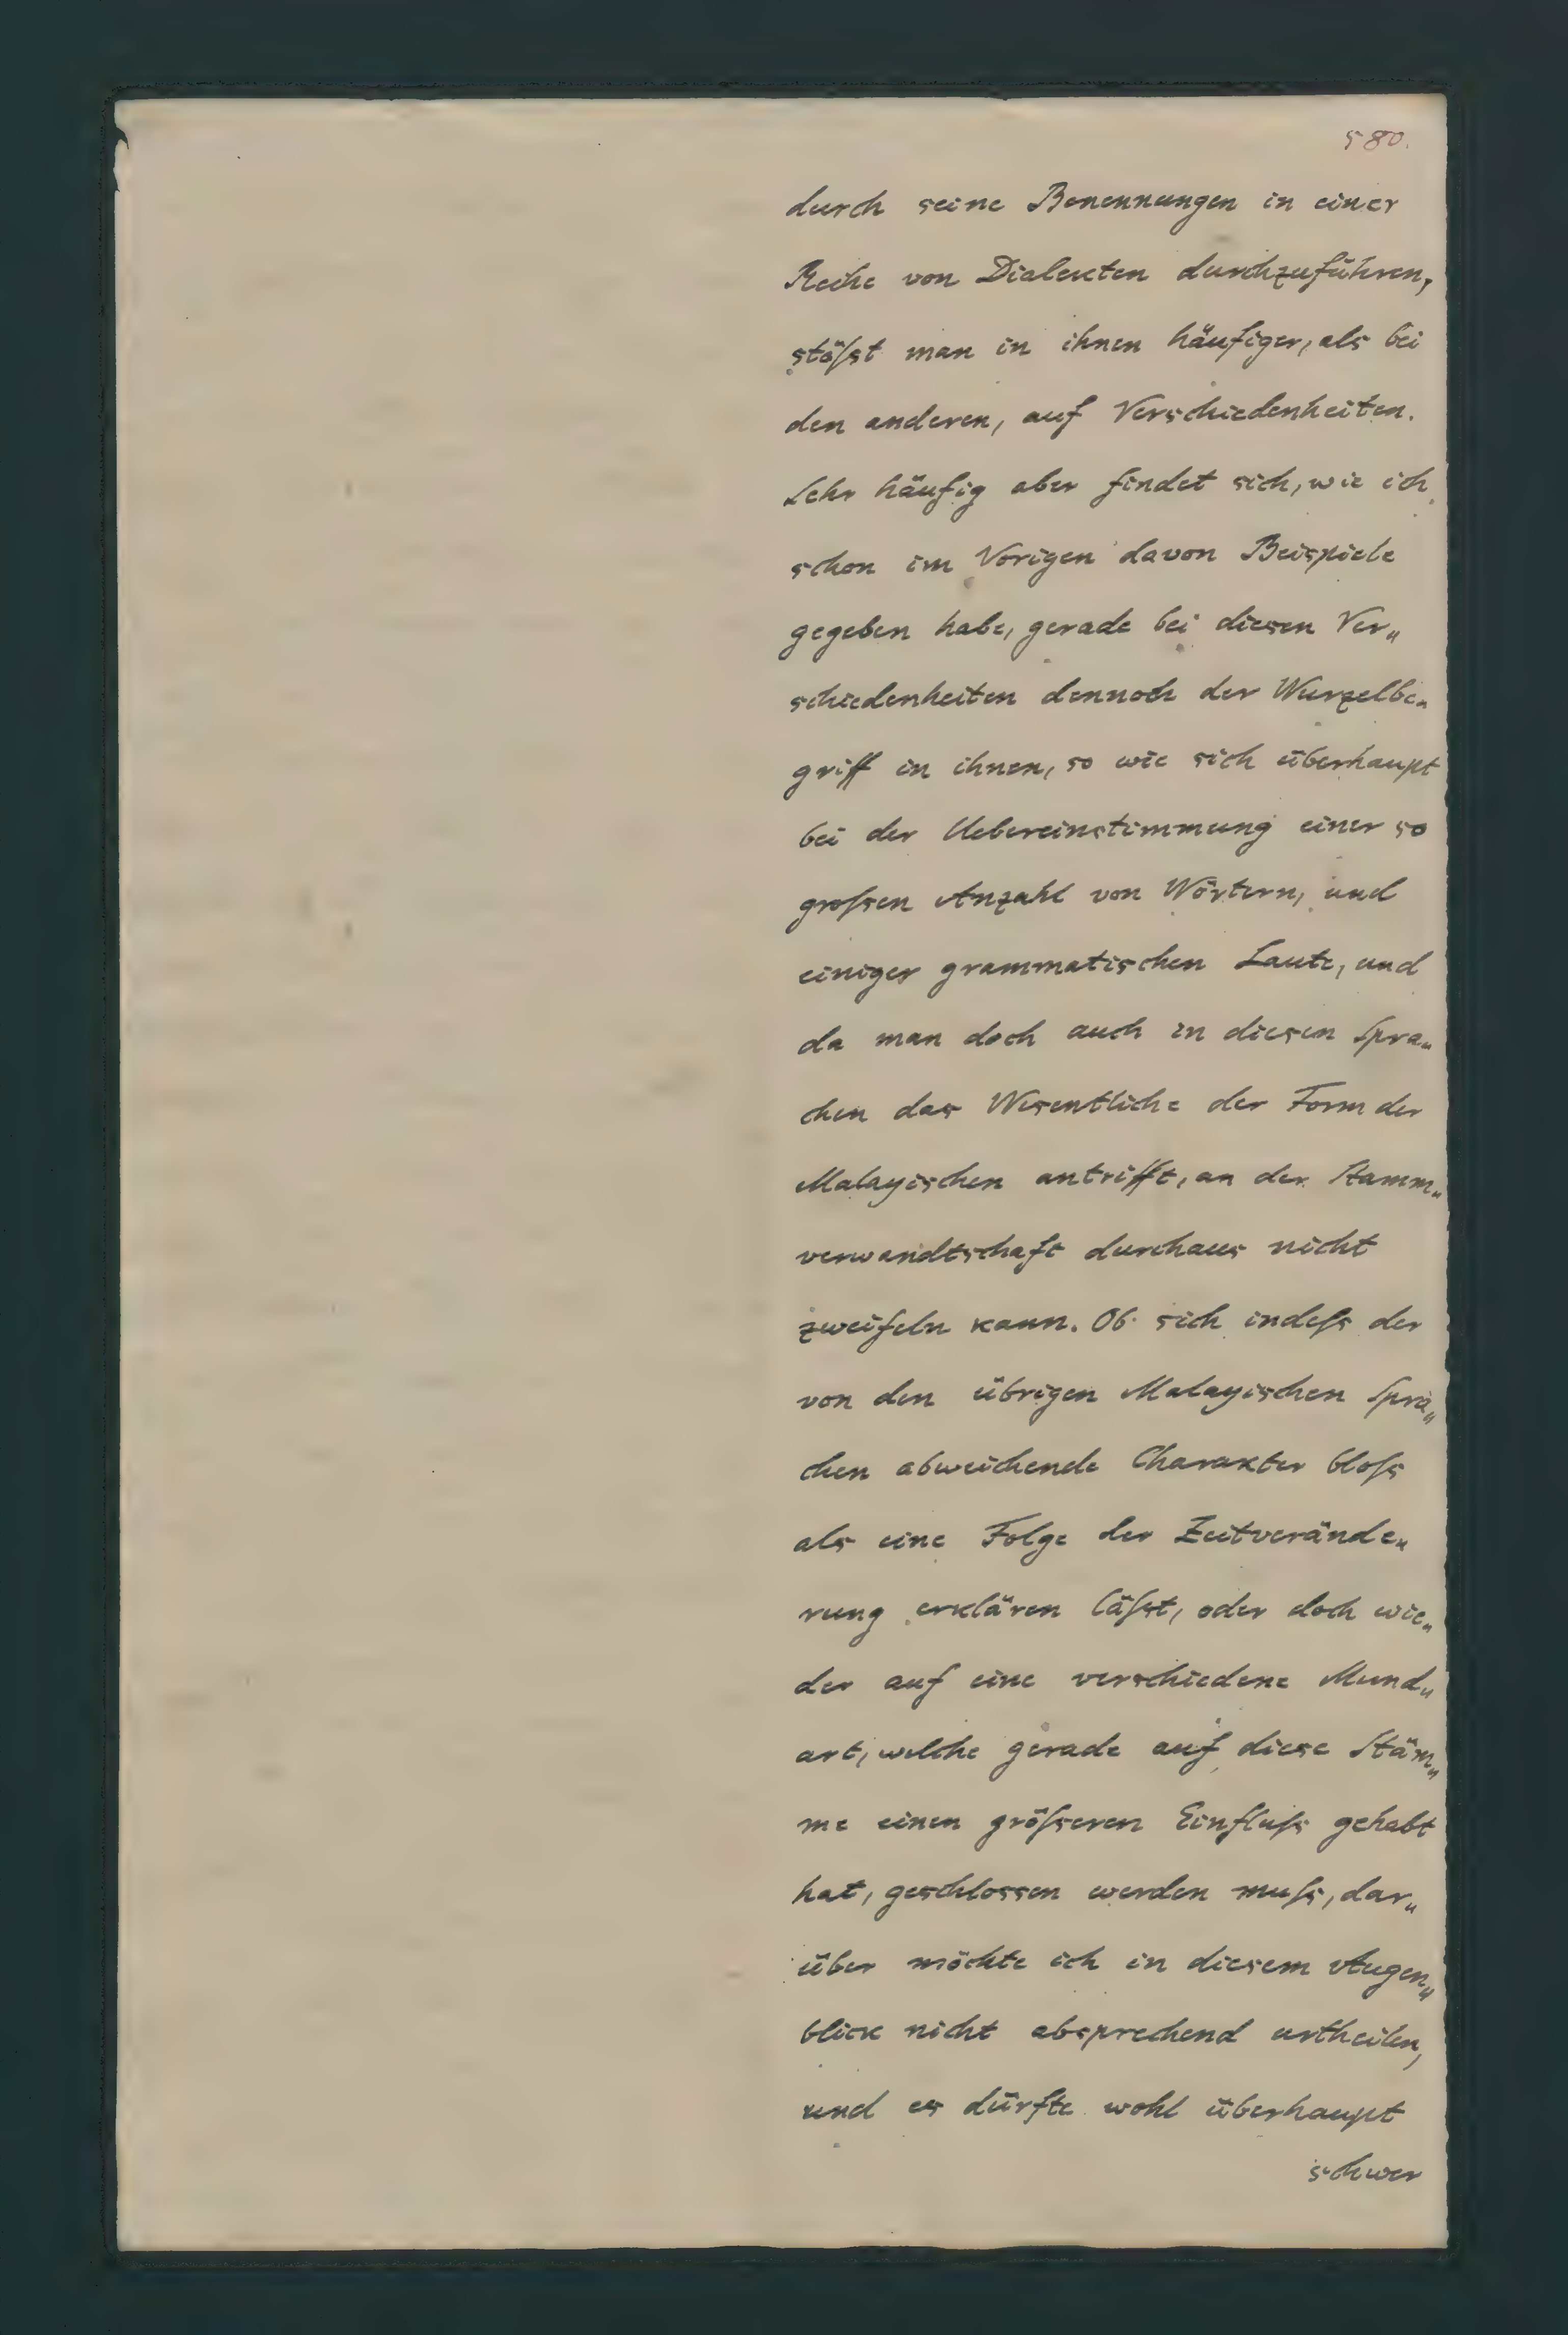 580.
durch seine Benennungen in einer
Reihe von Dialekten durchzuführen,
stöſst man in ihnen häufiger, als bei
den anderen, auf Verschiedenheiten.
Sehr häufig aber findet sich, wie ich
schon im Vorigen davon Beispiele
gegeben habe, gerade bei diesen Ver„
schiedenheiten dennoch der Wurzelbe„
griff in ihnen, so wie sich überhaupt
bei der Uebereinstimmung einer so
groſsen Anzahl von Wörtern, und
einiger grammatischen Laute, und
da man doch auch in diesen Spra„
chen das Wesentliche der Form der
Malayischen antrifft, an der Stamm„
verwandtschaft durchaus nicht
zweifeln kann. Ob sich indeſs der
von den übrigen Malayischen Spra„
chen abweichende Charakter bloſs
als eine Folge der Zeitverände„
rung erklären läſst, oder doch wie„
der auf eine verschiedene Mund„
art, welche gerade auf diese Stäm„
me einen gröſseren Einfluſs gehabt
hat, geschlossen werden muſs, dar„
über möchte ich in diesem Augen„
blick nicht absprechend urtheilen,
und es dürfte wohl überhaupt
schwer